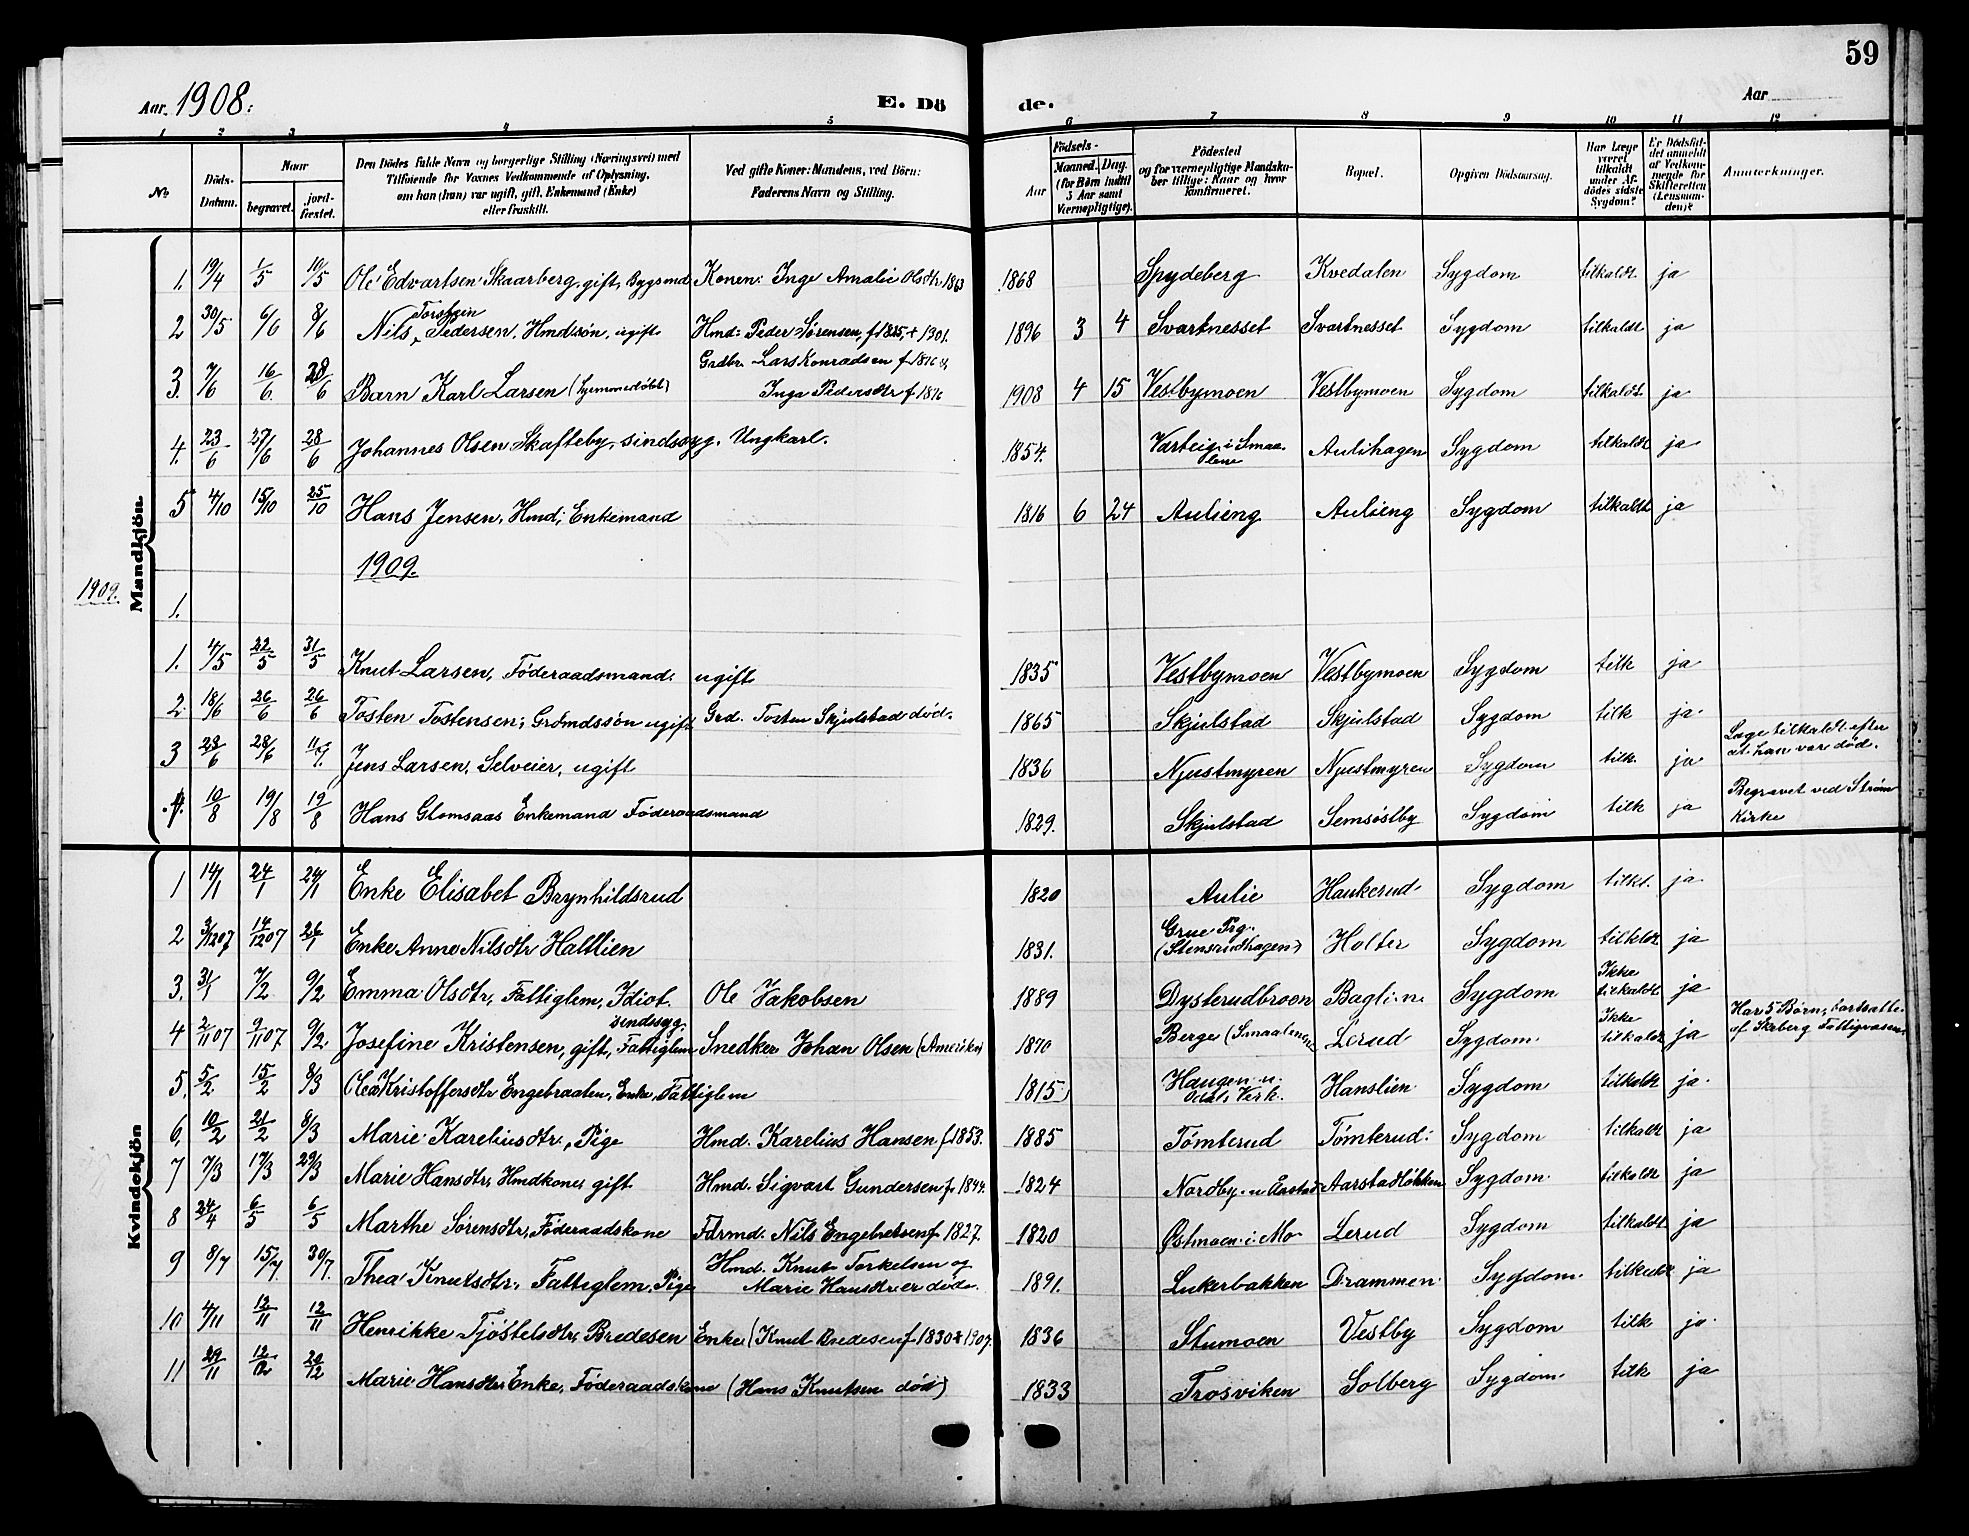 59
Aar 1908.
E. Dö
de.
Aar
1 2 3 4 5 6 7 8 9 10 11 12
No.
Döds-Datum.
Naar
begravet.
jord-fæstet.
Den Dödes fulde Navn og borgerlige Stilling (Næringsvei) med
Tilföiende for Voxnes Vedkommende af Oplysning,
om han (hun) var ugift, gift, Enkemand (Enke)
eller fraskilt.
Ved gifte Koner: Mandens, ved Börn:
Faderens Navn og Stilling.
Födsels-
Aar
Maaned. Dag.
(for Børn indtil
5 Aar samt
Værnepligtige).
Födested
og for værnepligtige Mandska-
ber tillige: Naar og hvor
konfirmeret.
Bopæl.
Opgiven Dödsaarsag.
Har Læge
været
tilkaldt
under Af-
dødes sidste
Sygdom?
Er Dödsfal-
det anmeldt
af Vedkom-
mende for
Skifteretten
(Lensman-
den)?
Anmærkninger.
Mandkjön.
1. 19/4 1/5 10/5 Ole Edvartsen Skaarberg, gift, Bygsmd Konen: Inge Amalie Olsdtr 1863 1868 Spydeberg Kvedalen Sygdom tilkaldt. ja
2 30/5 6/6 8/6 Nils Torstein Pedersen, Hmdsøn, ugift Hmd: Peder Sørensen, f 1835, + 1901. 1896 3 4 Svartnesset Svartnesset Sygdom tilkaldt ja
Grdbr. Lars Konradsen f 1876 &
3. 7/6 16/6 28/6 Barn Karl Larsen (hjemmedøbt) Inga Pedersdtr f 1876 1908 4 15 Vestbymoen Vestbymoen Sygdom tilkaldt. ja
4. 23/6 27/6 28/6 Johannes Olsen Skafteby, sindssyg, Ungkarl. 1854. Varteig i Smaalene Aulihagen Sygdom tilkaldt ja
5 4/10 15/10 25/10 Hans Jensen, Hmd, Enkemand 1816 6 24 Aulieng Aulieng Sygdom tilkaldt ja
1909.
1909.
1.
1. 4/5 22/5 31/5 Knut Larsen, Føderaadsmand. ugift 1835 Vestbymoen Vestbymoen Sygdom tilk ja
2. 18/6 26/6 26/6 Tosten Tostensen, Grdmdssøn ugift Grd. Tosten Skjulstad død. 1865 Skjulstad Skjulstad Sygdom tilk ja.
3 23/6 28/6 11/7 Jens Larsen, Selveier, ugift 1836 Njustmyren Njustmyren Sygdom tilk. ja Læge tilkaldt efter at han var død.
4. 10/8 19/8 19/8 Hans Glomsaas Enkemand Føderaadsmand 1829. Skjulstad Semsøstby Sygdom tilk ja Begravet ved Strøm Kirke
Kvindekjön
1 14/1 24/1 24/1 Enke Elisabet Brynhildsrud 1820 Aulie Haukerud Sygdom tilkt. ja
2 3/12 07 14/12 07 26/1 Enke Anne Nilsdtr Haltlien 1831. Grue Prg. (Stensrudhagen) Holter Sygdom tilkldt ja
3. 31/1 7/2 9/2 Emma Olsdtr, Fattiglem, Idiot. Ole Jakobsen 1889 Dysterudbroen Baglien Sygdom Ikke tilkaldt ja
4 2/11 07 9/11 07 9/2 Josefine Kristensen, gift, sindssyg. Fattiglem Snedker Johan Olsen (Amerika) 1870 Berge (Smaalenene Lerud Sygdom. Ikke tilkaldt ja Har 5 Børn, bortsatte af Skrberg Fattigvæsen
5. 5/2 15/2 8/3 Olea Kristoffersdtr Engebraaten, Enke, Fattiglem 1815 Haugen u. Odals Verk. Hanslien Sygdom tilkaldt ja.
6. 10/2 21/2 8/3 Marie Kareliusdtr, Pige Hmd. Karelius Hansen f 1853. 1885 Tømterud Tømterud Sygdom tilkaldt ja
7 7/3 17/3 29/3 Marie Hansdtr, Hmdkone, gift Hmd. Sigvart Gundersen f. 1844. 1824 Nordby u Aarstad Aarstadløkken Sygdom. tilkaldt ja
8 24/4 6/5 6/5 Marthe Sørensdtr, Føderaadskone Fdrmd. Nils Engebretsen f 1827. 1820 Østmoen i Mo Lerud Sygdom tilkaldt ja
9 8/7 15/7 30/7. Thea Knutsdtr, Fattiglem, Pige Hmd. Knut Torkelsen og Marie Hansdtr er døde. 1891. Lukerbakken Drammen Sygdom. tilkaldt ja
10 4/11 12/11 12/11 Henrikke Tjøstelsdtr Bredesen Enke (Knut Bredesen f 1830 + 1907. 1836 Stumoen Vestby Sygdom tilk ja.
11 29/11 12/12 20/12 Marie Hansdtr Enke, Føderaadskone (Hans Knutsen død) 1833 Trosviken Solberg Sygdom. tilk ja